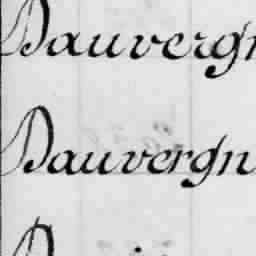 Dauvergn
Dauvergn